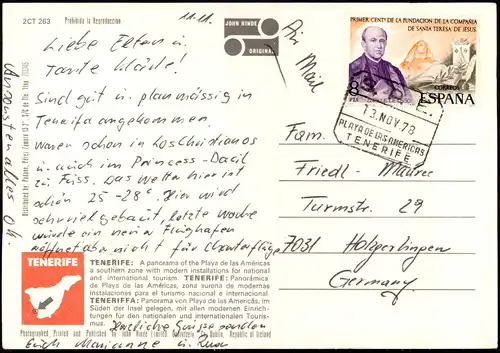 2CT 263
Prohibida la Reproduccion
11.11.
JOHN HINDE
ORIGINAL
Air
Mail
Liebe Eltern u.
Tante
Sind gut u. planmässig in
Teneriffa angekommen.
waren schon in Los Christianos
u. auch im Princess-Dacil
zu Fuss. Das Wetter hier ist
schön 25-28°. Hier wird
sehr viel gebaut, letzte Woche
wurde ein neuer Flughafen
eröffnet aber nicht für Charterflüge
Ansonsten alles o.k.
Herzliche Grüsse senden
Erich Marianne u.
PRIMER CENT. DE LA FUNDACION DE LA COMPAÑIA
DE SANTA TERESA DE JESUS
8
PTA
CORREOS
ESPAÑA
13. NOV. 78
PLAYA DE LAS AMERICAS
TENERIFE
Fam.
Friedl-
Turmstr. 29
7031 Holzgerlingen
Germany
TENERIFE
TENERIFE: A panorama of the Playa de las Américas
a southern zone with modern installations for national
and international tourism. TENERIFE: Panorámica
de Playa de las Américas, zona surona de modernas
instalaciones para el turismo nacional e internacional.
TENERIFFA: Panorama von Playa de las Americas, im
Süden der Insel gelegen, mit allen modernen Einrich-
tungen für den nationalen und internationalen Touris-
mus.
Photographed, Printed and Published by John Hinde Limited, Dublin, Republic of Ireland